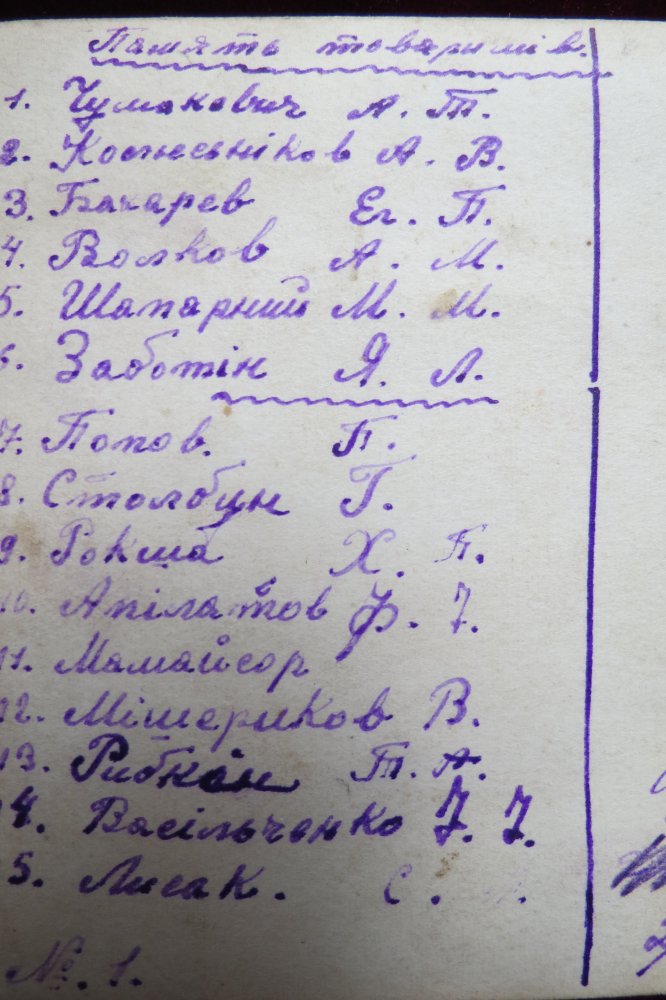 Память товаришів.
1. Чумакович А. Т.
2. А. В.
3. Бахарев Ег. П.
4. Волков А. М.
5. Шапарний М. М.
6. Заботін Я. Л.
7. Попов. П.
8. Столбун Г.
9. Рокша Х. П.
10. Апілатов Ф. І.
11. Мамайсор
12. Мішериков В.
13. Рибкін Т. А.
14. Васільченко І. І.
15. Лисак. С.
№. 1.